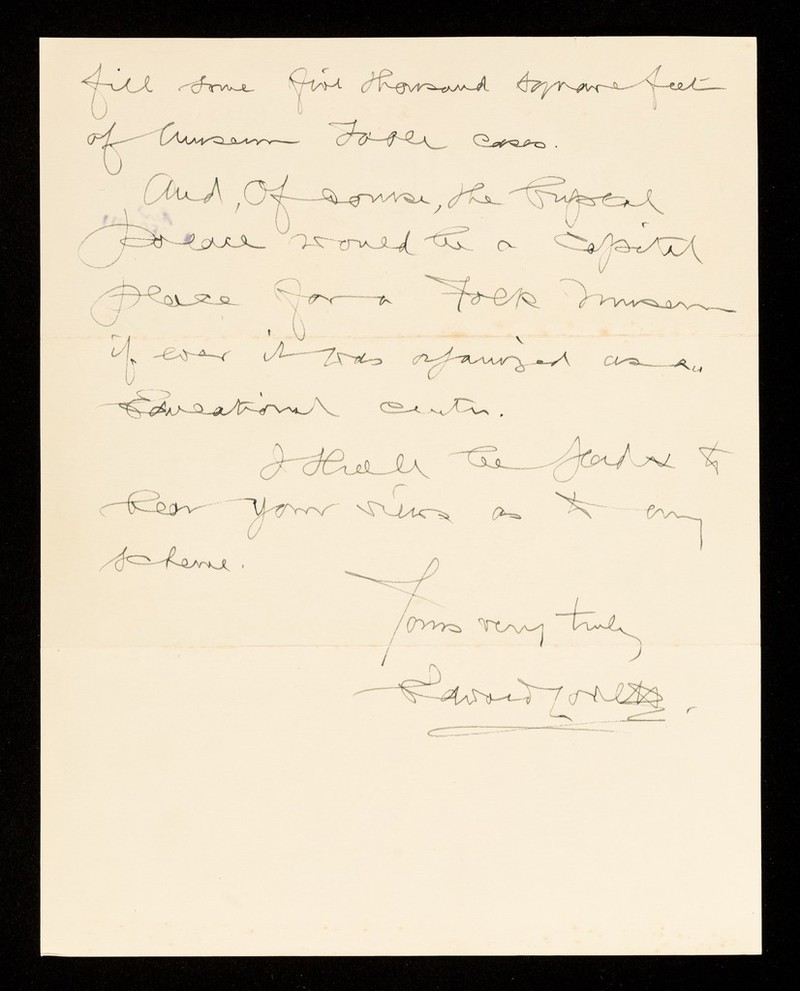 fill some five thousand square feet
of Museum Table cases.
And, of course, the Crystal
Palace would be a capital
place for a Folk Museum
if ever it was organized as an
Educational centre.
I shall be glad to
hear your views as to any
scheme.
Yours very truly
Edward Lovett.